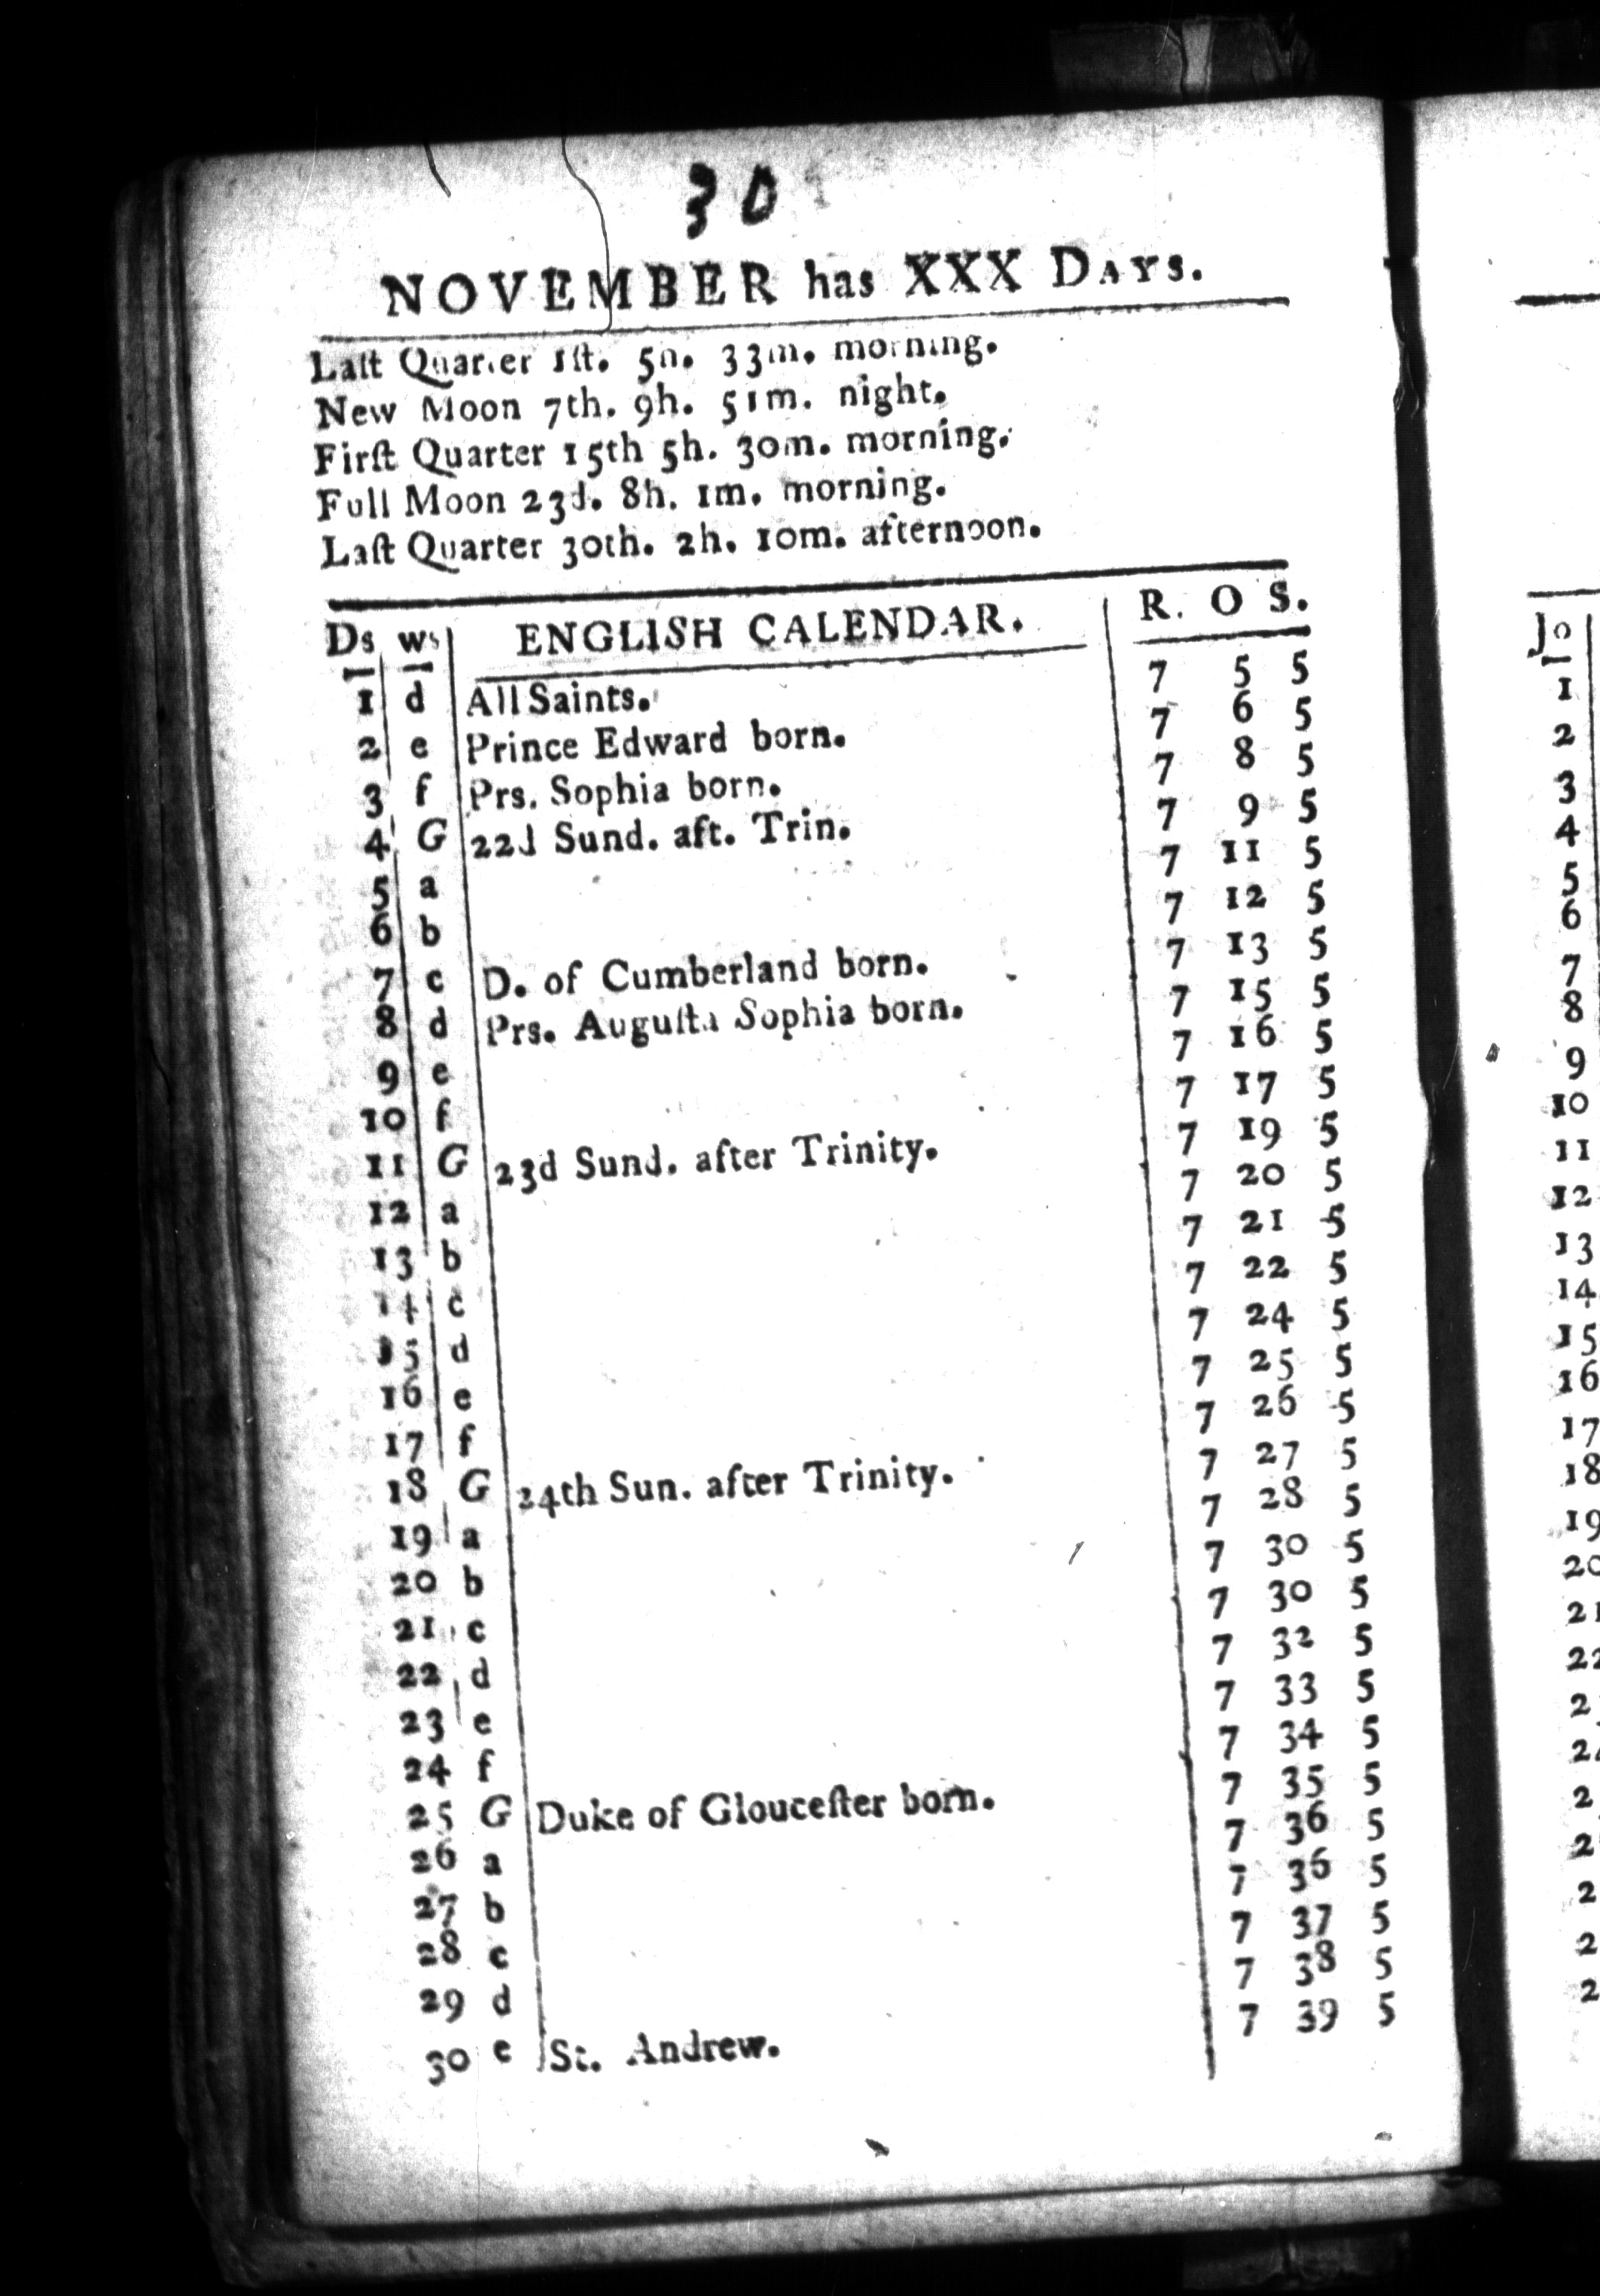 30
NOVEMBER has XXX DAYS.
Laſt Quarter 1ſt. 5h. 33m. morning.
New Moon 7th. 9h. 51m. night.
Firſt Quarter 15th 5h. 30m. morning.
Full Moon 23d. 8h. 1m. morning.
Laſt Quarter 30th. 2h. 10m. afternoon.
Ds ws ENGLISH CALENDAR. R. O S.
1 d All Saints. 7 5 5
2 e Prince Edward born. 7 6 5
3 f Prs. Sophia born. 7 8 5
4 G 22d Sund. aft. Trin. 7 9 5
5 a 7 11 5
6 b 7 12 5
7 c D. of Cumberland born. 7 13 5
8 d Prs. Auguſta Sophia born. 7 15 5
9 e 7 16 5
10 f 7 17 5
11 G 23d Sund. after Trinity. 7 19 5
12 a 7 20 5
13 b 7 21 5
14 c 7 22 5
15 d 7 24 5
16 e 7 25 5
17 f 7 26 5
18 G 24th Sun. after Trinity. 7 27 5
19 a 7 28 5
20 b 7 30 5
21 c 7 30 5
22 d 7 32 5
23 e 7 33 5
24 f 7 34 5
25 G Duke of Glouceſter born. 7 35 5
26 a 7 36 5
27 b 7 36 5
28 c 7 37 5
29 d 7 38 5
30 e St. Andrew. 7 39 5
Jo
1
2
3
4
5
6
7
8
9
10
11
12
13
14
15
16
17
18
19
20
21
22